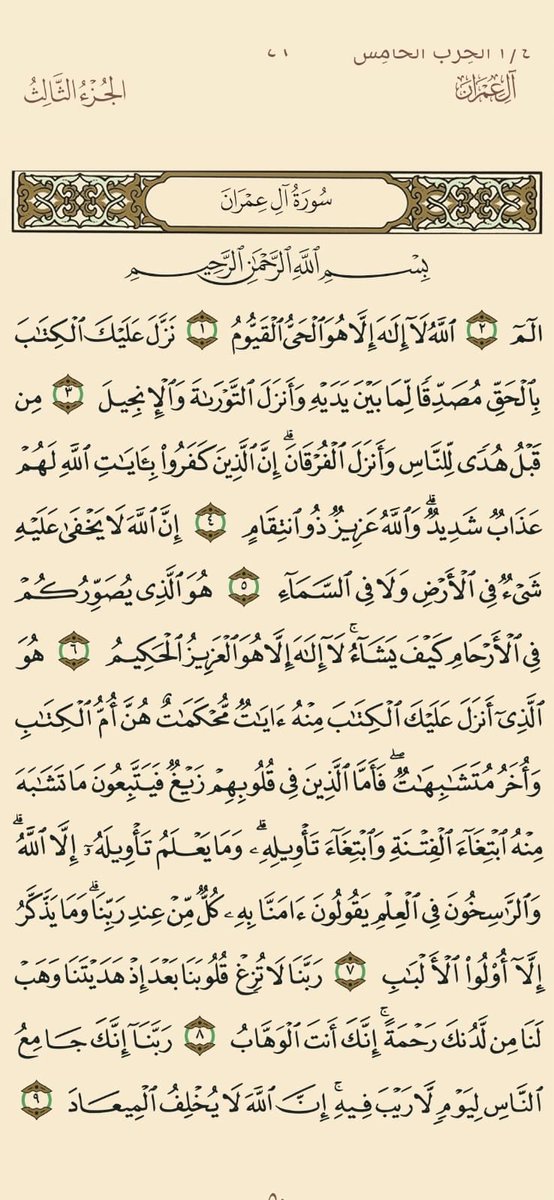 ١/٤ الحزب الخامس
آلِ عِمْرَان
الجُزْءُ الثَّالِثُ
سُورَةُ آلِ عِمْرَانَ
بِسْمِ ٱللَّهِ ٱلرَّحْمَٰنِ ٱلرَّحِيمِ
الٓمٓ ٢ ٱللَّهُ لَآ إِلَٰهَ إِلَّا هُوَ ٱلْحَىُّ ٱلْقَيُّومُ ١ نَزَّلَ عَلَيْكَ ٱلْكِتَٰبَ
بِٱلْحَقِّ مُصَدِّقًا لِّمَا بَيْنَ يَدَيْهِ وَأَنزَلَ ٱلتَّوْرَىٰةَ وَٱلْإِنجِيلَ ٣ مِن
قَبْلُ هُدًى لِّلنَّاسِ وَأَنزَلَ ٱلْفُرْقَانَۗ إِنَّ ٱلَّذِينَ كَفَرُوا۟ بِـَٔايَٰتِ ٱللَّهِ لَهُمْ
عَذَابٌ شَدِيدٌۗ وَٱللَّهُ عَزِيزٌ ذُو ٱنتِقَامٍ ٤ إِنَّ ٱللَّهَ لَا يَخْفَىٰ عَلَيْهِ
شَىْءٌ فِى ٱلْأَرْضِ وَلَا فِى ٱلسَّمَآءِ ٥ هُوَ ٱلَّذِى يُصَوِّرُكُمْ
فِى ٱلْأَرْحَامِ كَيْفَ يَشَآءُۚ لَآ إِلَٰهَ إِلَّا هُوَ ٱلْعَزِيزُ ٱلْحَكِيمُ ٦ هُوَ
ٱلَّذِىٓ أَنزَلَ عَلَيْكَ ٱلْكِتَٰبَ مِنْهُ ءَايَٰتٌ مُّحْكَمَٰتٌ هُنَّ أُمُّ ٱلْكِتَٰبِ
وَأُخَرُ مُتَشَٰبِهَٰتٌۖ فَأَمَّا ٱلَّذِينَ فِى قُلُوبِهِمْ زَيْغٌ فَيَتَّبِعُونَ مَا تَشَٰبَهَ
مِنْهُ ٱبْتِغَآءَ ٱلْفِتْنَةِ وَٱبْتِغَآءَ تَأْوِيلِهِۦۗ وَمَا يَعْلَمُ تَأْوِيلَهُۥٓ إِلَّا ٱللَّهُۗ
وَٱلرَّٰسِخُونَ فِى ٱلْعِلْمِ يَقُولُونَ ءَامَنَّا بِهِۦ كُلٌّ مِّنْ عِندِ رَبِّنَاۗ وَمَا يَذَّكَّرُ
إِلَّآ أُو۟لُوا۟ ٱلْأَلْبَٰبِ ٧ رَبَّنَا لَا تُزِغْ قُلُوبَنَا بَعْدَ إِذْ هَدَيْتَنَا وَهَبْ
لَنَا مِن لَّدُنكَ رَحْمَةًۚ إِنَّكَ أَنتَ ٱلْوَهَّابُ ٨ رَبَّنَآ إِنَّكَ جَامِعُ
ٱلنَّاسِ لِيَوْمٍ لَّا رَيْبَ فِيهِۚ إِنَّ ٱللَّهَ لَا يُخْلِفُ ٱلْمِيعَادَ ٩